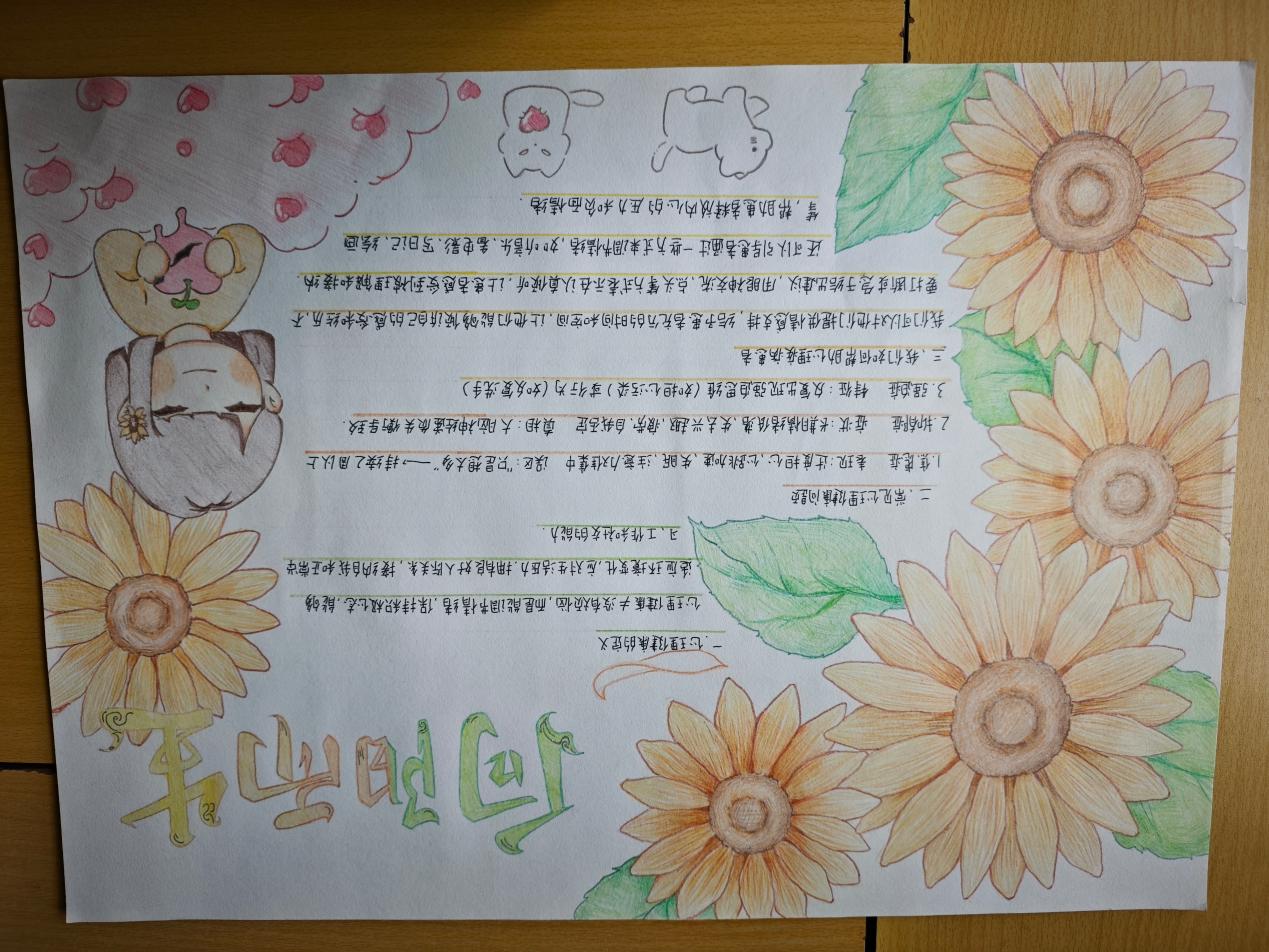 向阳而生
一.心理健康的定义
心理健康≠没有烦恼,而是能调节情绪,保持积极心态,能够
适应环境变化,应对生活压力.拥有良好人际关系,接纳自我和正常学
习、工作和社交的能力.
二、常见心理健康问题
1.焦虑症 表现:过度担心,心跳加速,失眠,注意力难集中 误区:“只是想太多”——→持续2周以上
2.抑郁症 症状:长期情绪低落,失去兴趣,疲惫,自我否定 真相:大脑神经递质失衡导致.
3.强迫症 特征:反复出现强迫思维(如担心污染)或行为(如反复洗手)
三、我们如何帮助心理疾病患者
我们可以对他们提供情感支持,给予患者充分的时间和空间,让他们能够倾诉自己的感受和经历,不
要打断或急于给出建议,用眼神交流、点头等方式表示在认真倾听,让患者感受到被理解和接纳
还可以引导患者通过一些方式来调节情绪,如听音乐、看电影、写日记、绘画
等,帮助患者释放内心的压力和负面情绪.